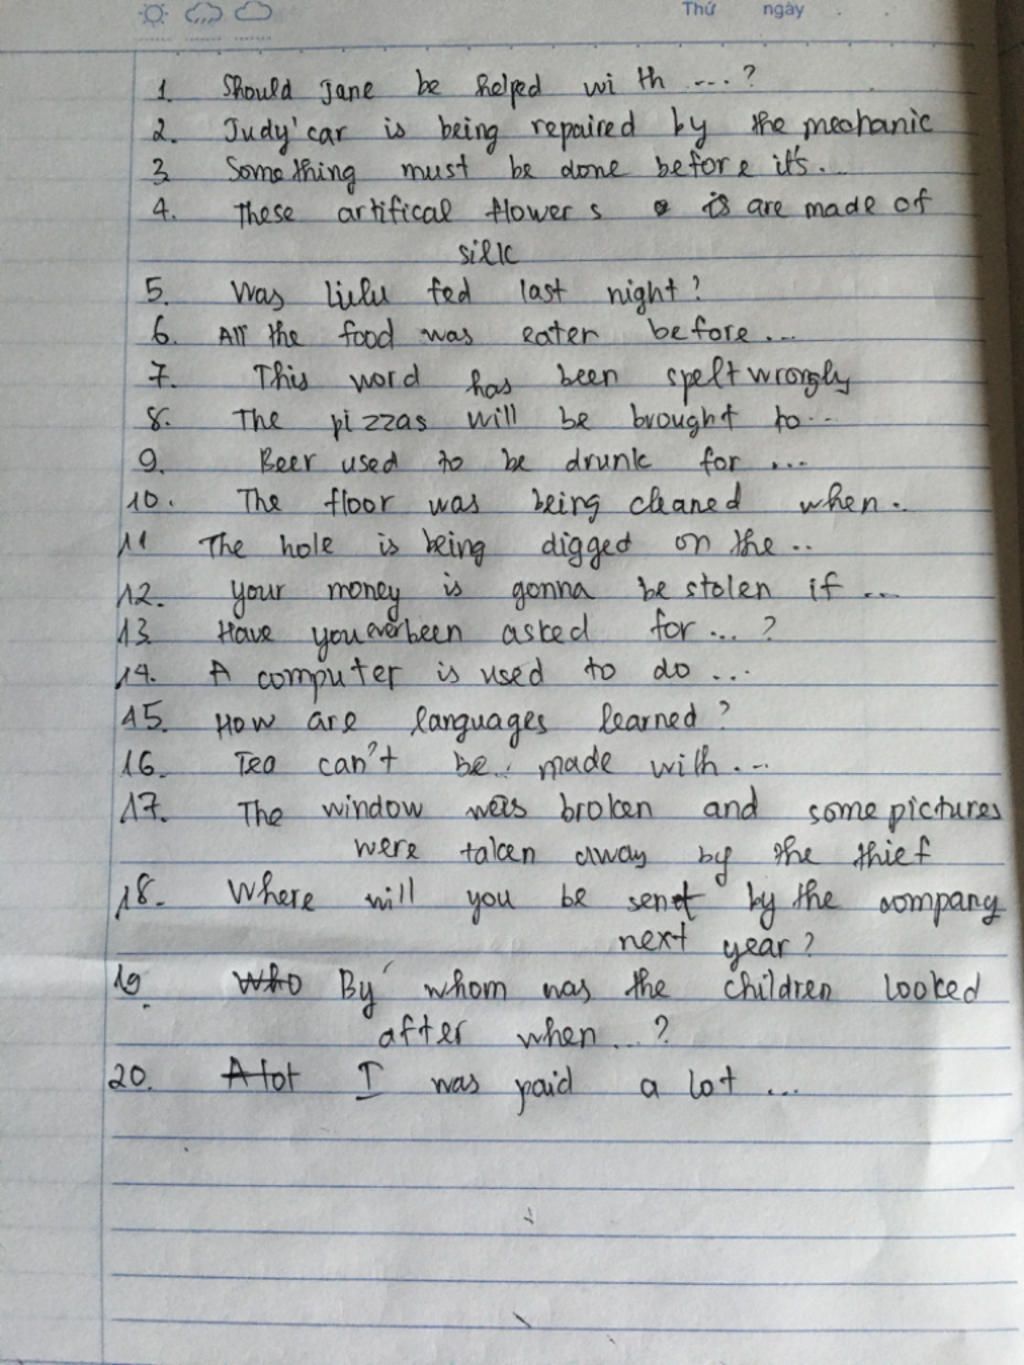 Thứ ngày
1. Should Jane be helped with ...?
2. Judy' car is being repaired by the mechanic
3 Something must be done before it's...
4. These artifical flowers is are made of
silk
5. Was Lulu fed last night?
6. All the food was eater before...
7. This word has been spelt wrongly
8. The pizzas will be brought to...
9. Beer used to be drunk for ...
10. The floor was being cleaned when..
11 The hole is being digged on the ..
12. your money is gonna be stolen if ...
13 Have you ever been asked for ... ?
14. A computer is used to do ...
15. How are languages learned?
16. Tea can't be made with...
17. The window was broken and some pictures
were taken away by the thief
18. Where will you be sent by the company
next year?
19. Who By whom was the children looked
after when...?
20. A lot I was paid a lot ...